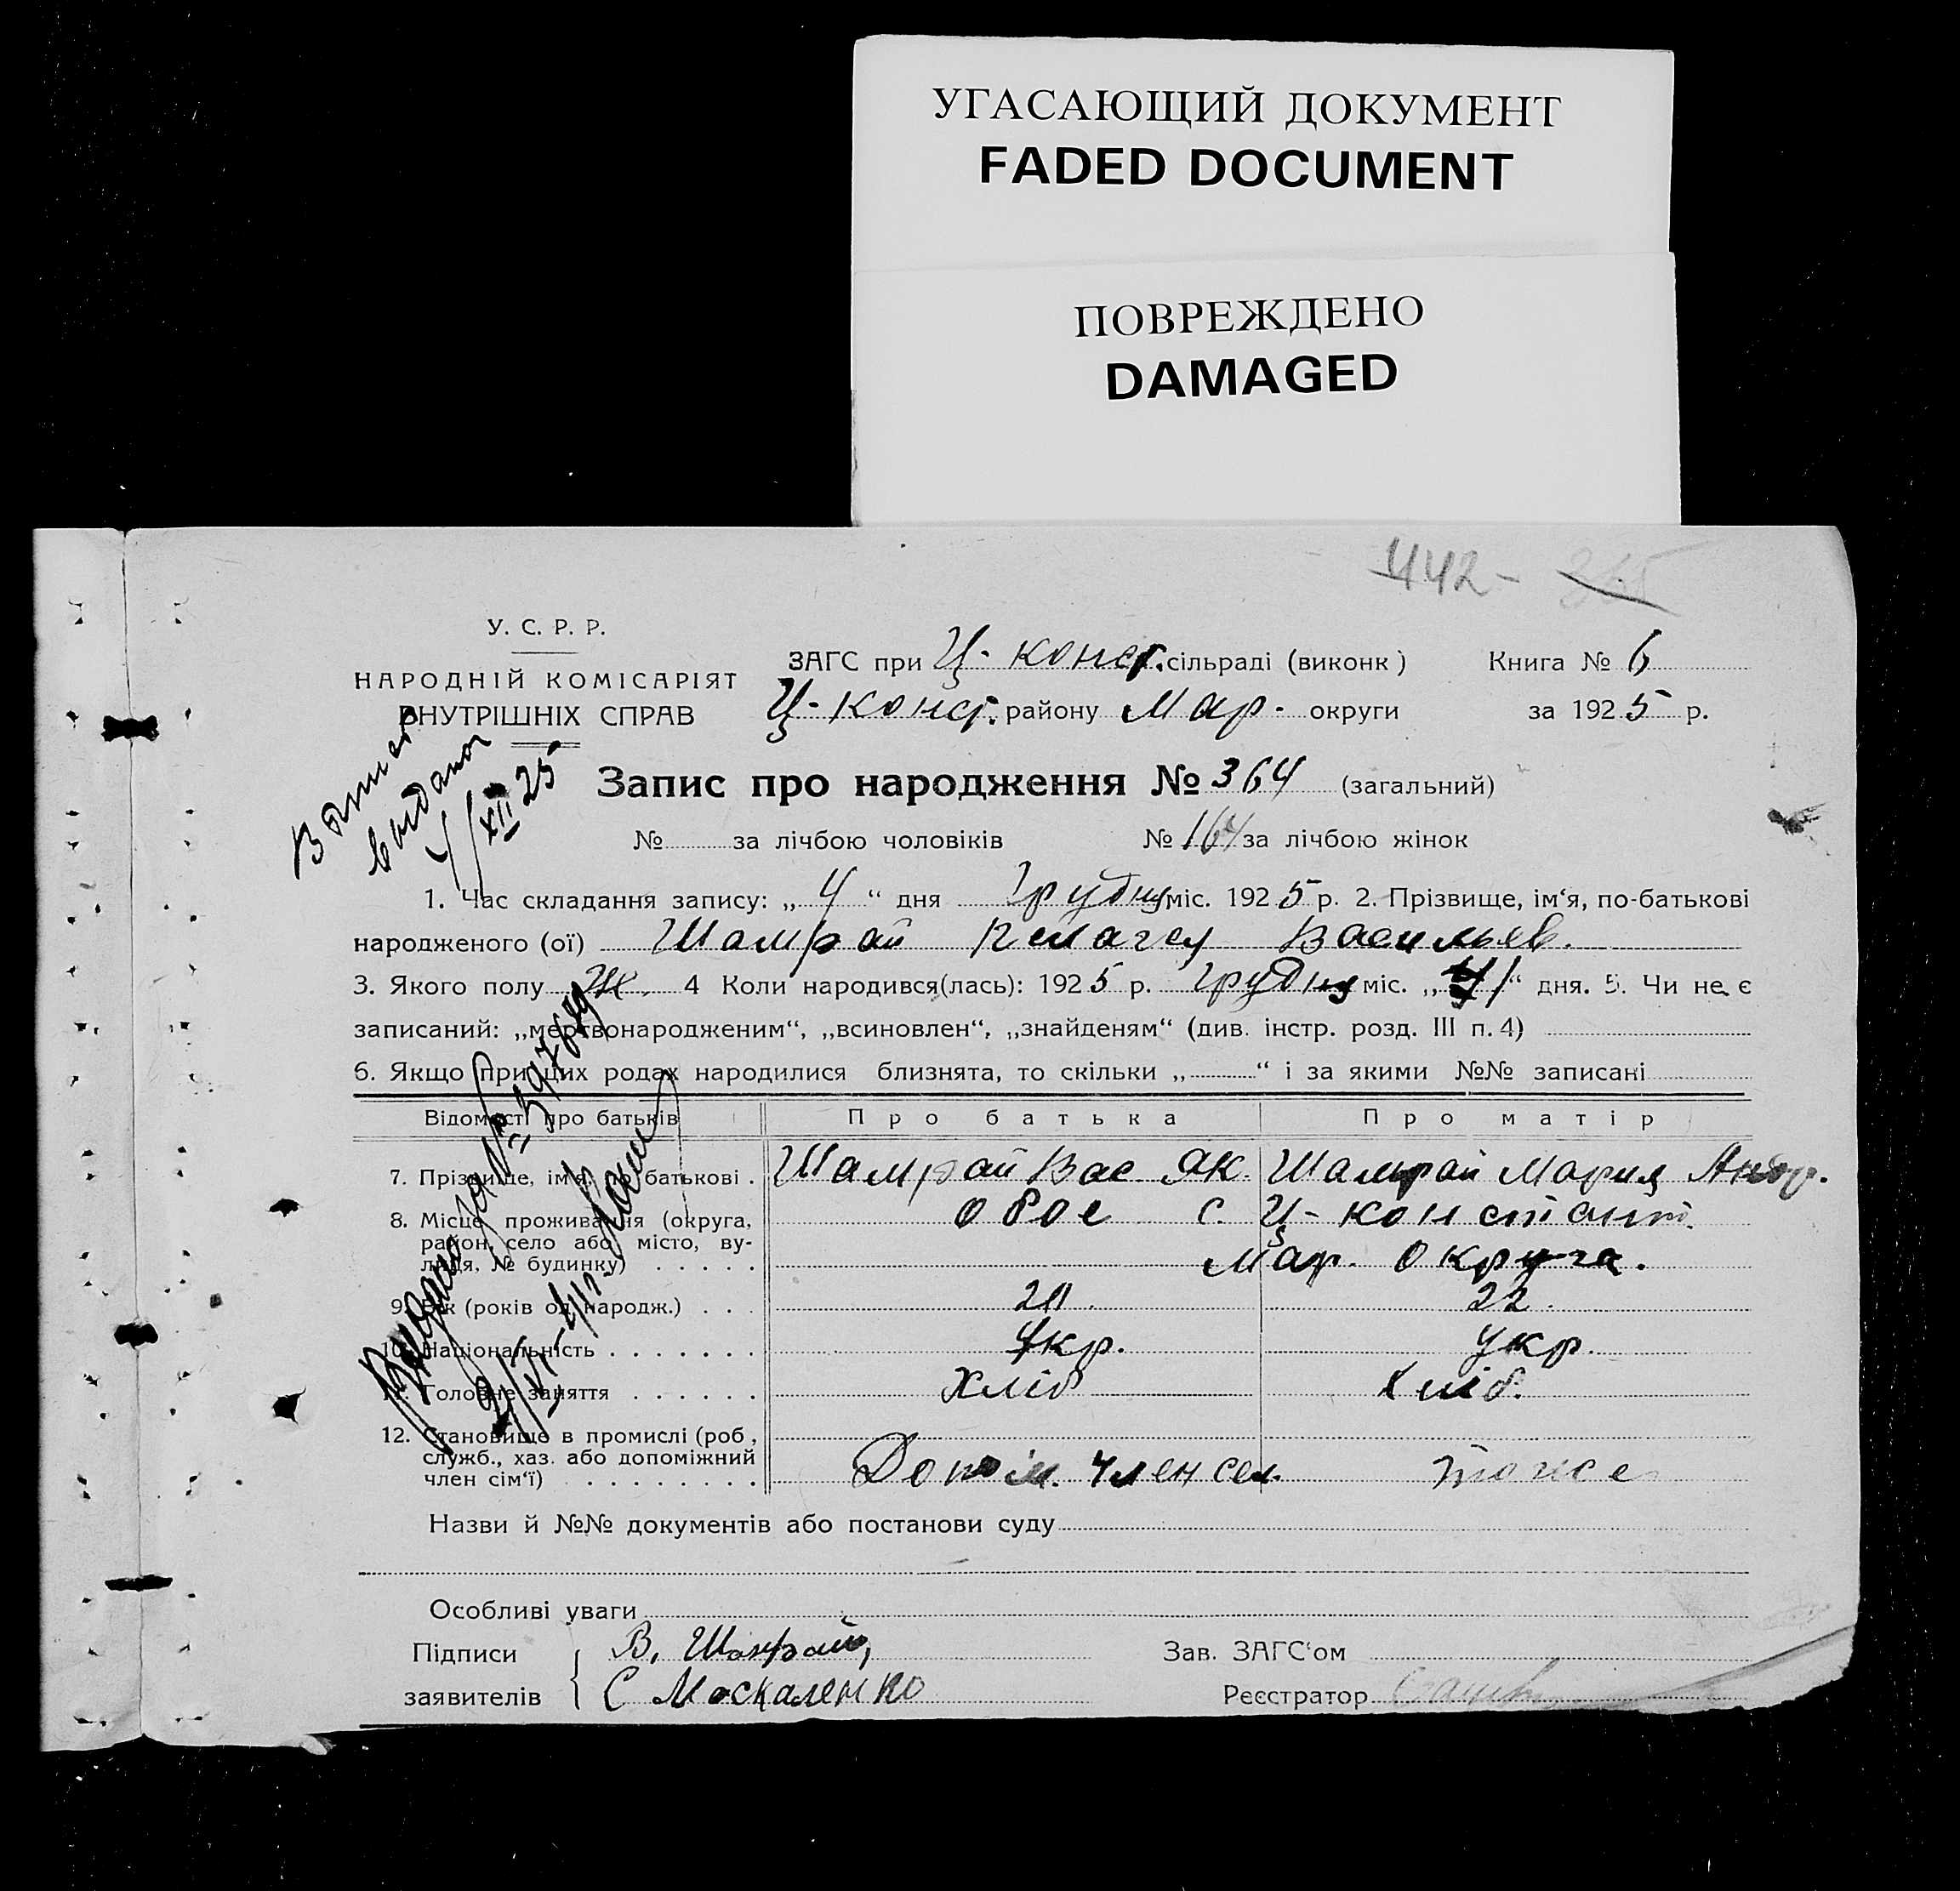 УГАСАЮЩИЙ ДОКУМЕНТ
FADED DOCUMENT
ПОВРЕЖДЕНО
DAMAGED
442 -
У. С. Р. Р.
НАРОДНІЙ КОМІСАРІЯТ
ВНУТРІШНІХ СПРАВ
ЗАГС при Ц-конст. сільраді (виконк) Книга № 6
Ц-Конст. району Мар. округи за 1925 р.
Запис про народження № 364 (загальний)
№ за лічбою чоловіків № 164 за лічбою жінок
видана
4/XII 25
1. Час складання запису: „ 4 “ дня Грудня міс. 1925 р. 2. Прізвище, ім‘я, по-батькові
народженого (ої) Шамрай Пелагея Васильев.
3. Якого полу Ж. 4 Коли народився(лась): 1925 р. Грудня міс. „ 1 “ дня. 5. Чи не є
записаний: „мертвонародженим“, „всиновлен“, „знайденям“ (див. інстр. розд. III п. 4)
6. Якщо при цих родах народилися близнята, то скільки „ “ і за якими №№ записані
Відомості про батьків Про батька Про матір
7. Прізвище, ім‘я, по батькові . Шамрай Вас Як. Шамрай Мария Андр.
8. Місце проживання (округа, район, село або місто, ву-лиця, № будинку) . . . . . обое с. Ц-констант.
Мар. Округа.
9. Вік (років од народж.) . . . 20. 22.
10. Національність . . . . . . . Укр. Укр.
11. Головне заняття . . . . . . Хліб Хліб.
12. Становище в промислі (роб, служб., хаз. або допоміжний член сім‘ї) . . . . . . . . . Допом. член сем. тоже
Видано
Назви й №№ документів або постанови суду
Особливі уваги
Підписи заявителів { В. Шамрай,
С Москаленко
Зав. ЗАГС‘ом
Реєстратор